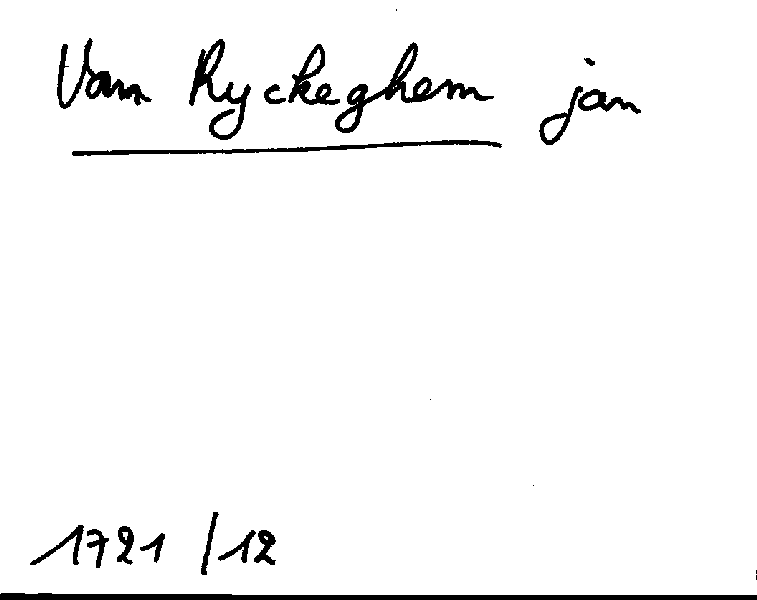 Van Ryckeghem jan
1721 /12